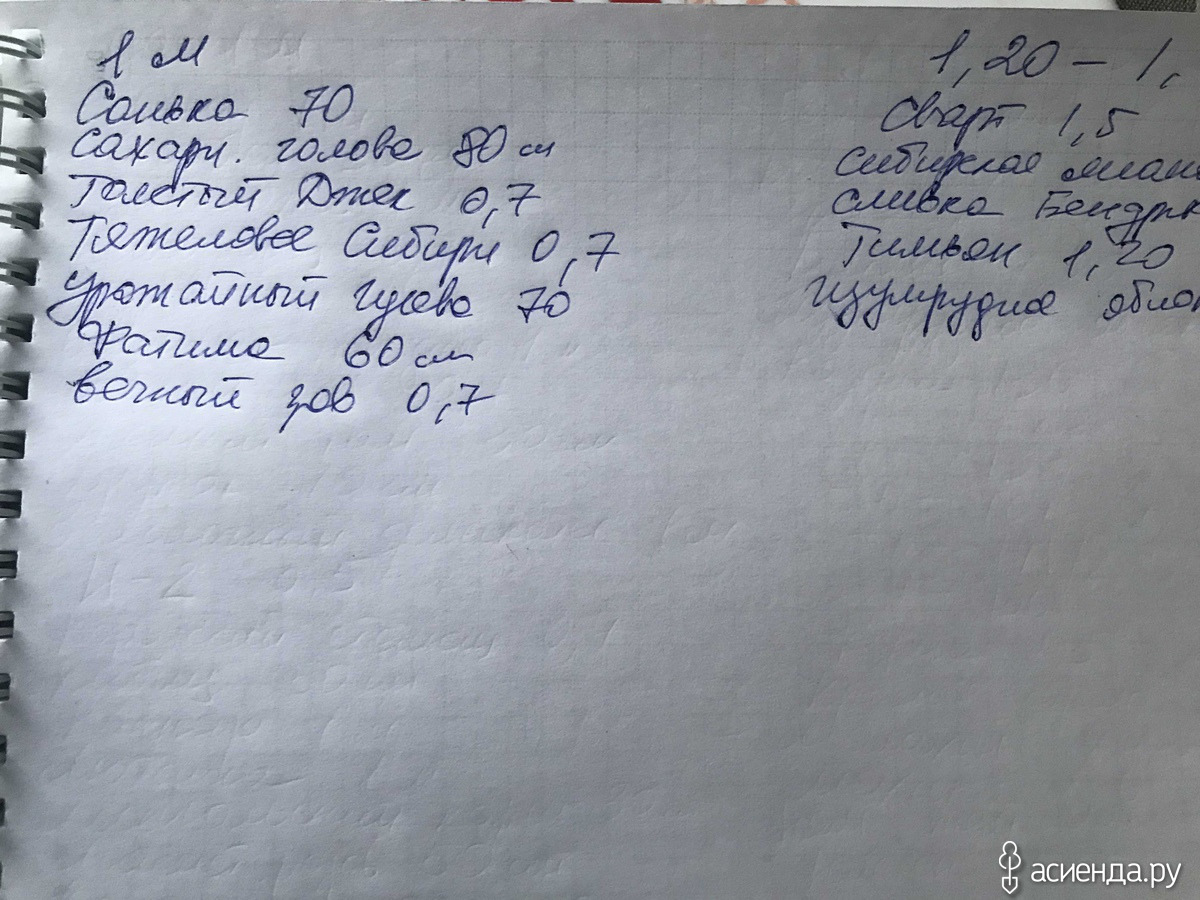 1 м
Санька 70
Сахарн. голова 80 см
Толстый Джек 0,7
Тяжеловес Сибири 0,7
Урожайный гусева 70
Фатима 60 см
вечный зов 0,7
1,20 – 1,
Сварт 1,5
Сибирская лиана
сливка Бендрик
Тимьян 1,20
Изумрудное яблок
асиенда.ру